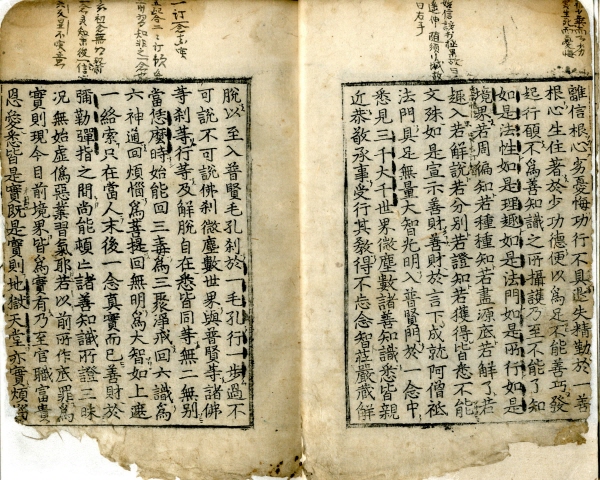 離信根心劣憂悔功行不具退失精勤於一善
根心生住著於少功德便以爲足不能善巧發
起行願不爲善知識之所攝護乃至不能了知
如是法性如是理趣如是法門如是所行如是
境界若周徧知若種種知若盡源底若解了若
趣入若解說若分別若證知若獲得皆悉不能
文殊如是宣示善財善財於言下成就阿僧祇
法門具足無量大智光明入普賢門於一念中
悉見三千大千世界微塵數諸善知識悉皆親
近恭敬承事受行其敎得不忘念智莊嚴藏解
脫以至入普賢毛孔刹於一毛孔行一步過不
可說不可說佛刹微塵數世界與普賢等諸佛
等刹等行等及解脫自在悉皆同等無二無別
當恁麽時始能回三毒爲三聚淨戒回六識爲
六神通回煩惱爲菩提回無明爲大智如上遮
一絡索只在當人末後一念眞實而已善財於
彌勒彈指之間尙能頓亡諸善知識所證三昧
況無始虛僞惡業習氣耶若以前所作底罪爲
實則現今目前境界皆爲實有乃至官職富貴
恩愛悉皆是實旣是實則地獄天堂亦實煩惱